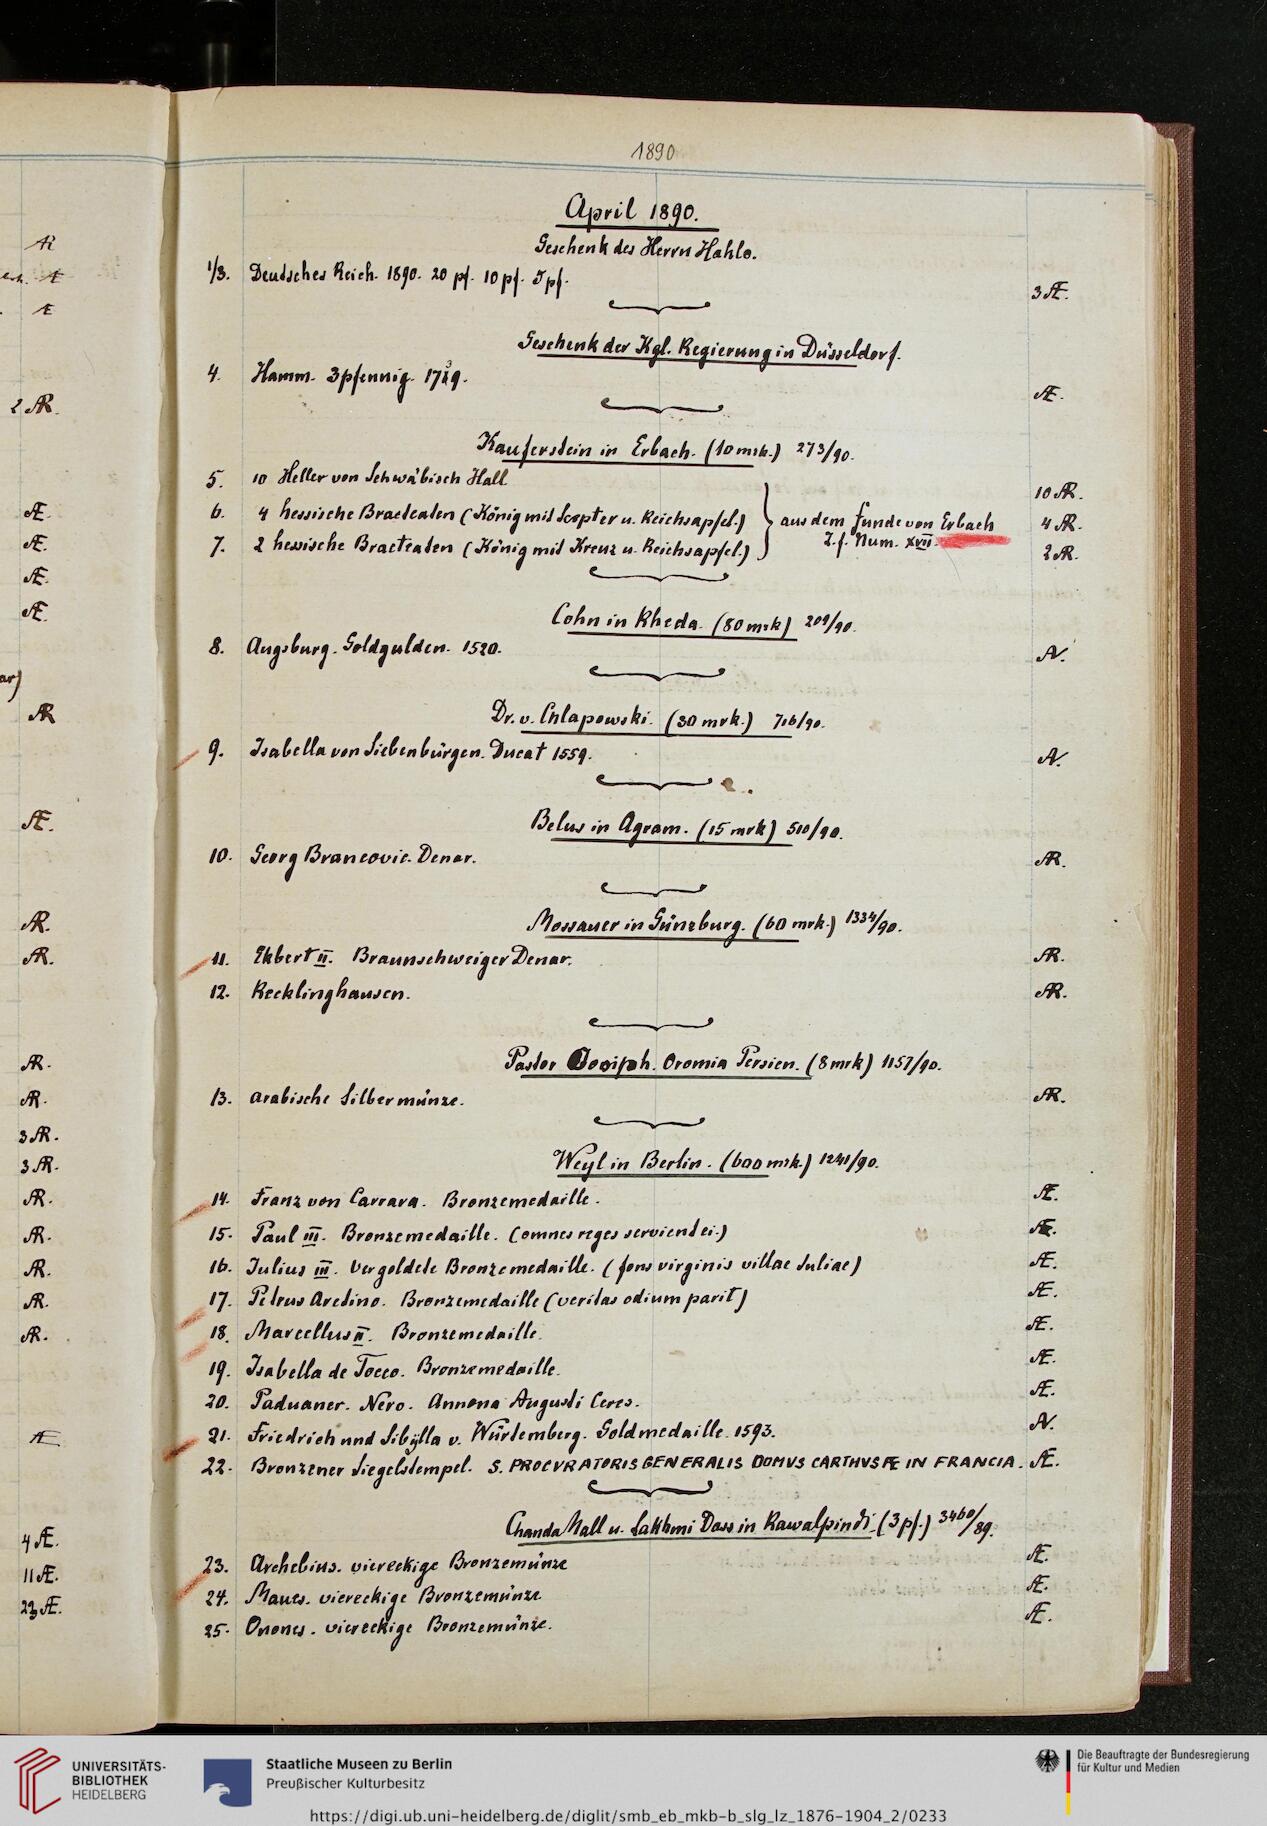 1890
April 1890.
Geschenk des Herrn Hahlo.
1/3. Deutsches Reich. 1890. 20 pf. 10 pf. 5 pf. 3 Æ.
Geschenk der Kgl. Regierung in Düsseldorf.
4. Hamm. 3 pfennig. 1739. Æ.
Kauferstein in Erbach. (10 mrk.) 273/90.
5. 10 Heller von Schwäbisch Hall 10 AR.
6. 4 hessische Bracteaten (König mit Scepter u. Reichsapfel.) 4 AR.
7. 2 hessische Bracteaten (König mit Kreuz u. Reichsapfel.) 2 AR.
aus dem Funde von Erbach
Z. f. Num. XVII.
Cohn in Rheda. (80 mrk) 209/90.
8. Augsburg. Goldgulden. 1520. AV.
Dr. v. Chlapowski. (30 mrk.) 716/90.
9. Isabella von Siebenbürgen. Ducat 1559. AV.
Belus in Agram. (15 mrk) 510/90.
10. Georg Brancovic. Denar. AR.
Mossauer in Günzburg. (60 mrk.) 1334/90.
11. Ekbert II. Braunschweiger Denar. AR.
12. Recklinghausen. AR.
Pastor Oromia Persien. (8 mrk) 1157/90.
13. arabische Silbermünze. AR.
Weyl in Berlin. (600 mrk.) 1241/90.
14. Franz von Carrara. Bronzemedaille. Æ.
15. Paul III. Bronzemedaille. (omnes reges servient ei.) Æ.
16. Julius III. Vergoldete Bronzemedaille. (fons virginis villae Juliae) Æ.
17. Petrus Aretino. Bronzemedaille (veritas odium parit) Æ.
18. Marcellus II. Bronzemedaille. Æ.
19. Isabella de Tocco. Bronzemedaille. Æ.
20. Paduaner. Nero. Annona Augusti Ceres. Æ.
21. Friedrich und Sibÿlla v. Würtemberg. Goldmedaille. 1593. AV.
22. Bronzener Siegelstempel. S. PROCVRATORIS GENERALIS DOMVS CARTHVSÆ IN FRANCIA. Æ.
Chanda Mall u. Lakhmi Dass in Rawalpindi. (3 pf.) 3460/89.
23. Archebius. viereckige Bronzemünze Æ.
24. Maues. viereckige Bronzemünze. Æ.
25. Onones. viereckige Bronzemünze. Æ.
AR
Æ
Æ
2 AR.
Æ.
Æ.
Æ.
Æ.
AR
Æ.
AR.
AR.
AR.
AR.
3 AR.
3 AR.
AR.
AR.
AR.
AR.
AR.
Æ
4 Æ.
11 Æ.
23 Æ.
UNIVERSITÄTS-
BIBLIOTHEK
HEIDELBERG
Staatliche Museen zu Berlin
Preußischer Kulturbesitz
Die Beauftragte der Bundesregierung
für Kultur und Medien
https://digi.ub.uni-heidelberg.de/diglit/smb_eb_mkb-b_slg_lz_1876-1904_2/0233